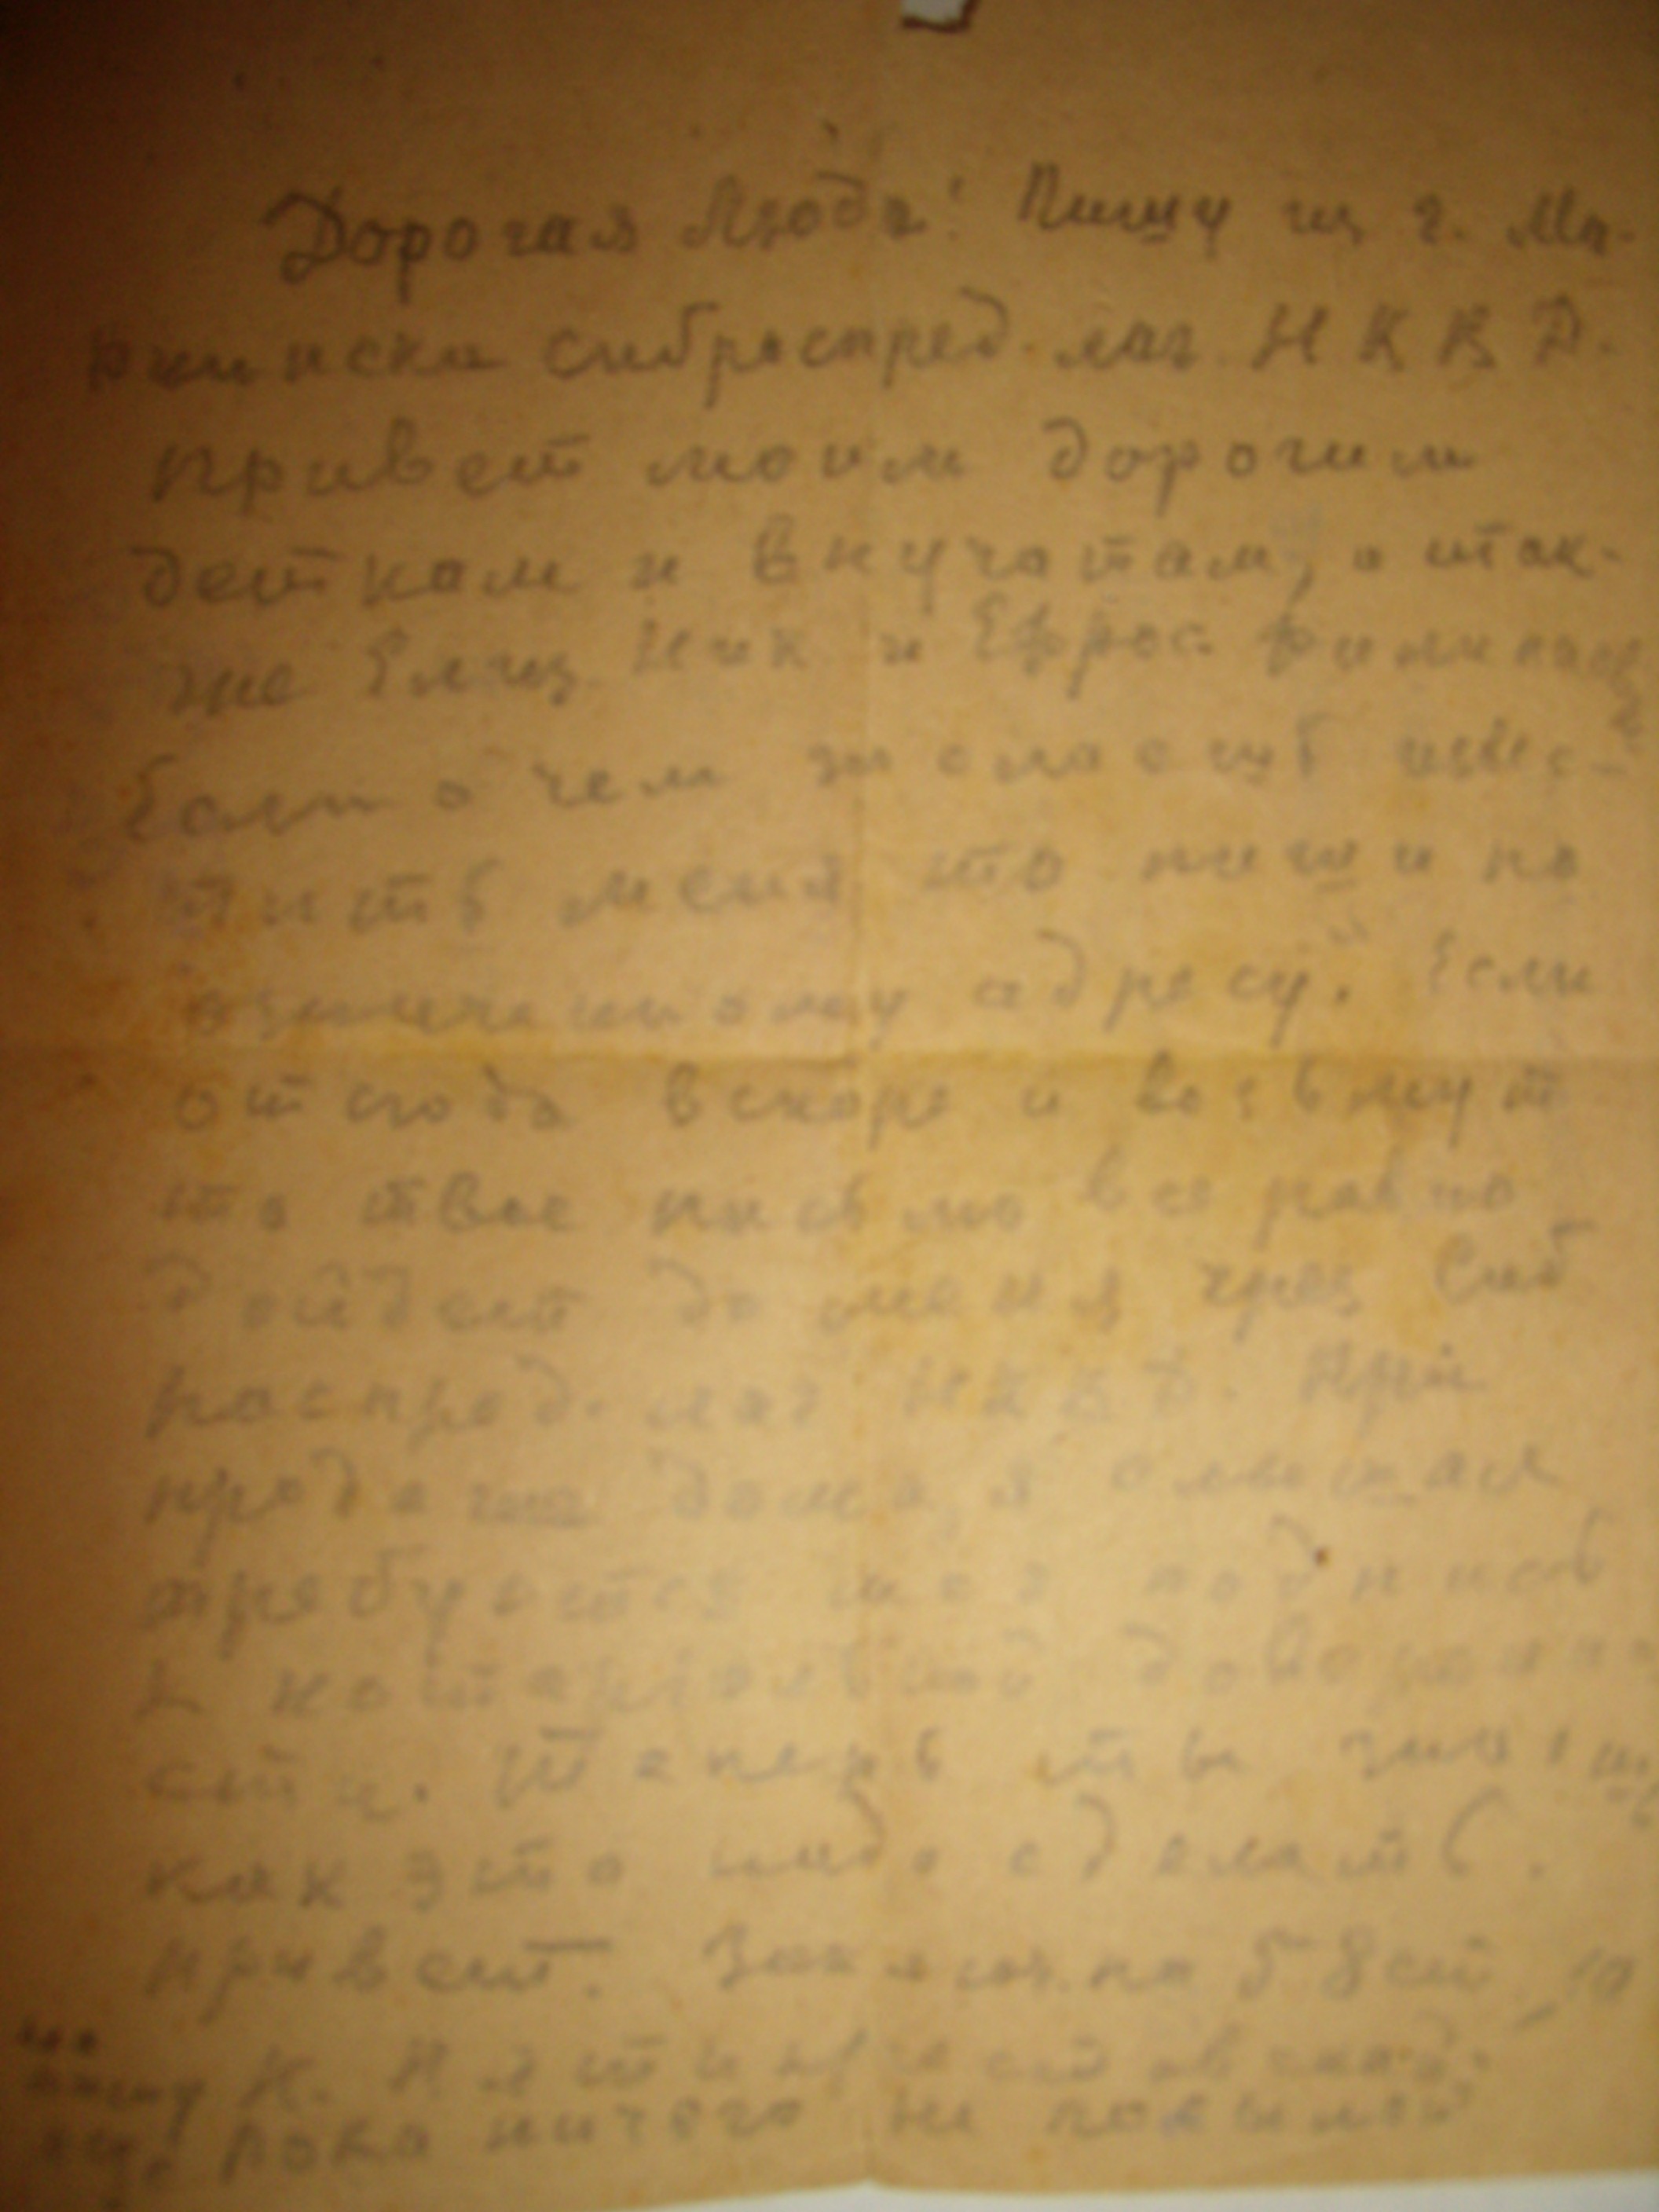 Дорогая Люда! Пишу из г. Ма-
риинска Сибраспред. лаг. НКВД.
Привет моим дорогим
деткам и внучатам, а так-
же Елиз. Ник. и Ефрос.
Если о чем
тить меня то пиши по
означенному адресу. Если
отсюда вскоре и возьмут
то твое письмо все равно
дойдет до меня чрез Сиб
распред. лаг НКВД. При
продаже дома я
требуется моя подпись
к нотариальной доверенно
сти. Теперь ты
как это надо сделать.
Привет. по 58 ст. 10
К.
пока ничего не